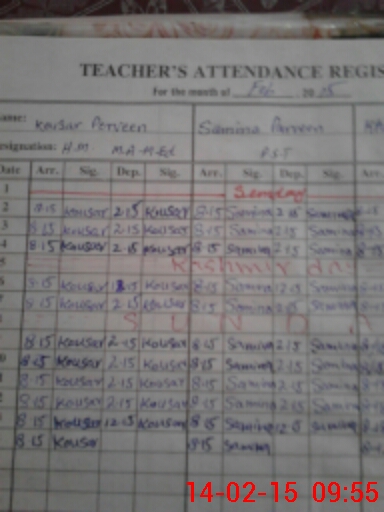 TEACHER'S ATTENDANCE REGIS
For the month of Feb 2015
ame: Kousar Perveen Samina Parveen
esignation: H.M M.A-M.Ed P.S.T
Date Arr. Sig. Dep. Sig. Arr. Sig. Dep. Sig. Arr.
1 Sunday
2 8-15 Kousar 2-15 Kousar 8-15 Samina 2-15 Samina
3 8-15 Kousar 2-15 Kousar 8-15 Samina 2-15 Samina
4 8-15 Kousar 2-15 Kousar 8-15 Samina 2-15 Samina
5 Kashmir day
6 8-15 Kousar Kousar 8-15 Samina Samina
7 8-15 Kousar 2-15 Kousar 8-15 Samina 2-15 Samina
S U N D A
8-15 Kousar 2-15 Kousar 8-15 Samina 2-15 Samina
8-15 Kousar 2-15 Kousar 8-15 Samina 2-15 Samina
8-15 Kousar 2-15 Kousar 8-15 Samina 2-15 Samina
8-15 Kousar 2-15 Kousar 8-15 Samina 2-15 Samina
8-15 Kousar 12-15 Kousar 8-15 Samina 12-15 Samina
8-15 Kousar 8-15 Samina
14-02-15 09:55